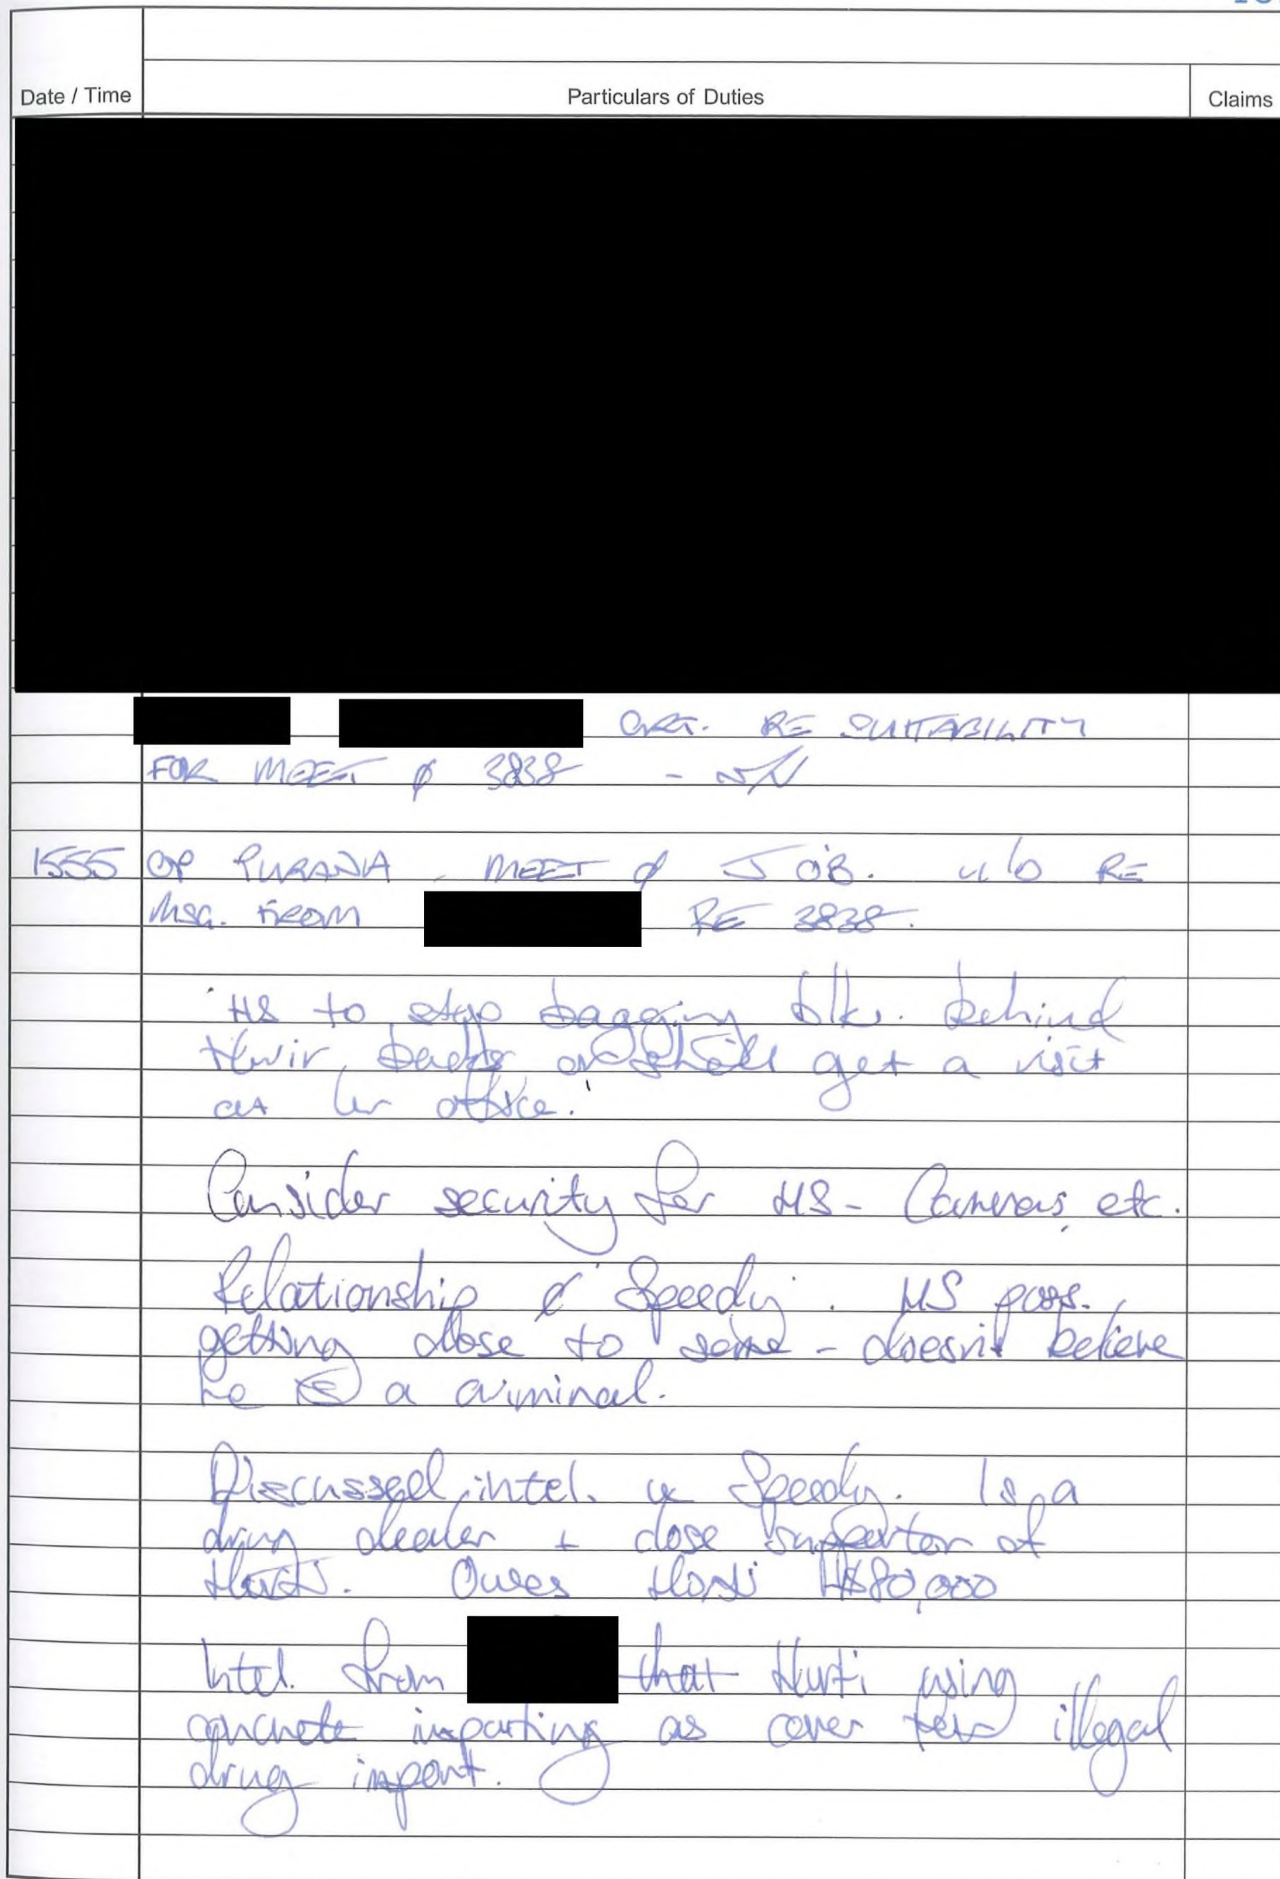 Date / Time Particulars of Duties Claims
RE SUITABILITY
FOR MEET ¢ 3838 -
1555 OP PURANA - MEET ¢ J O'B. RE
Msg. FROM RE 3838.
'HS to stop bagging blks. behind
their backs or she'll get a visit
at her office.'
Consider security for HS - Cameras, etc.
Relationship ¢ Speedy. HS poss.
getting close to same - doesn't believe
he is a criminal.
Discussed intel. Speedy. Is a
drug dealer + close supporter of
Owes $80,000
Intel. from that using
concrete importing as cover for illegal
drug import.